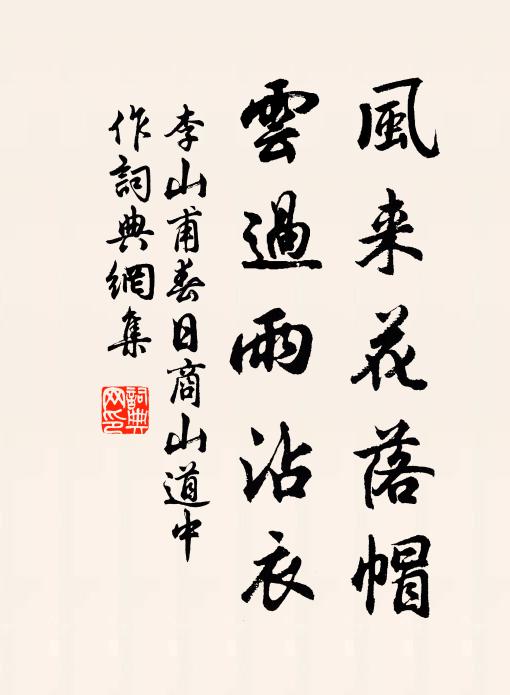 風来花落帽
雲過雨沾衣
李山甫春日商山道中
作詞典網集
詞典
网印